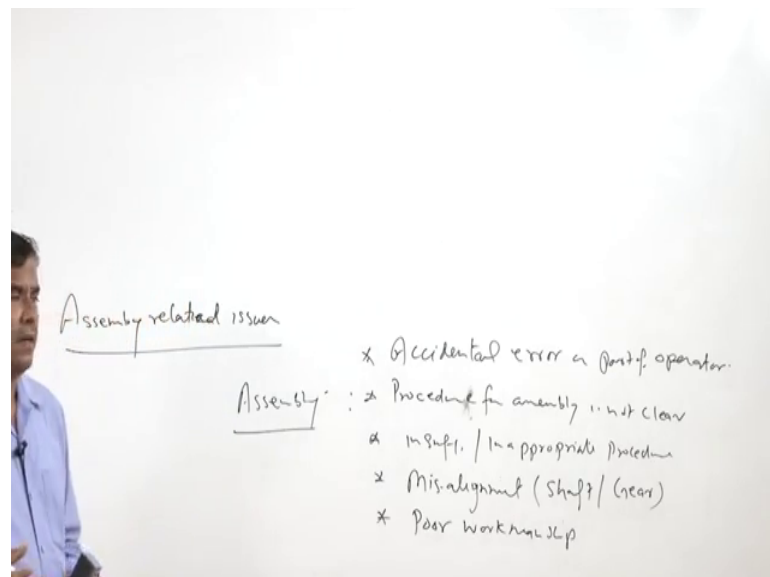 Assemby related issues
* Accidental error on part of operator.
Assembly : * Procedure for assembly is not clear
* insuff. / Inappropriate Procedure
* Mis-alignment (Shaft / Gear)
* Poor workmanship